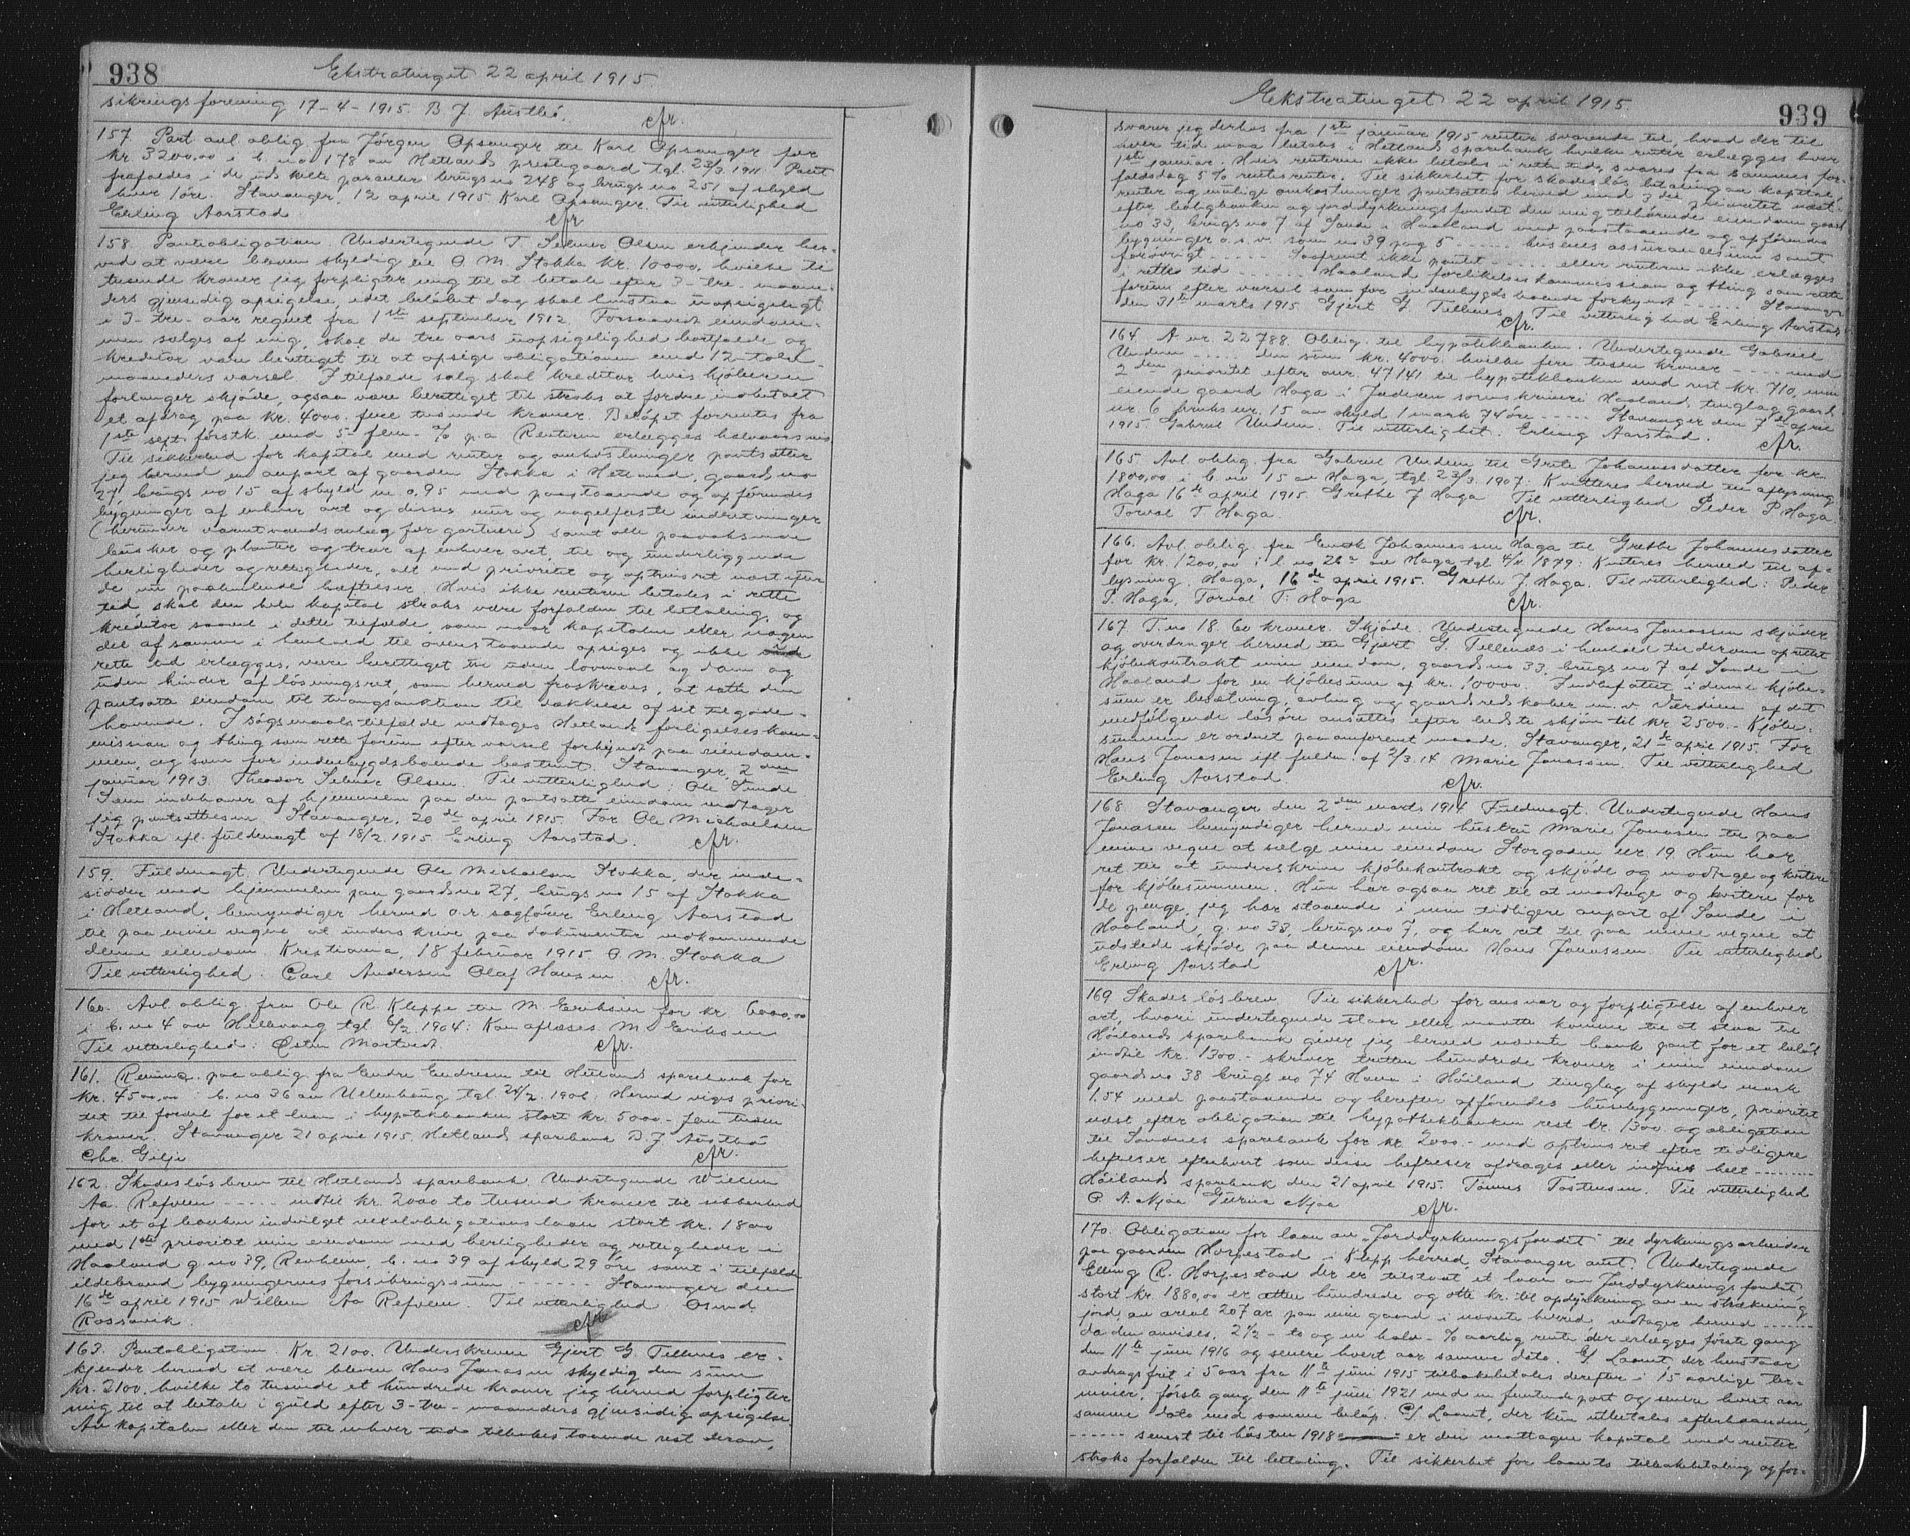 938
Ekstratinget 22 april 1915.
sikringsforening 17-4-1915. B J. Austbö.
cfr.
157. Part avl oblig. fra Jörgen Opsanger til Karl Opsanger for
kr 3200,00 i b. no 178 av Hetland prestegaard tgl. 23/3 1911. Pant
frafaldes i de utskilte parceller brugs no 248 og brugs no 251 af skyld
hver 1 öre. Stavanger, 12 april 1915 Karl Opsanger. Til vitterlighed
Erling Aarstad
cfr
158. Panteobligation. Undertegnede T. Selmer Olsen erkjender her-
ved at være bleven skyldig til O. M. Stokka kr. 10000. hvilke ti
tusende kroner jeg forpligter mig til at betale efter 3- tre- maane-
ders gjensidig opsigelse, idet belöbet dog skal henstaa uopsigeligt
i 3- tre- aar regnet fra 1ste september 1912. Forsaavidt eiendom-
men sælges af mig, skal de tre aars uopsigelighed bortfalde og
kreditor være berettiget til at opsige obligationen med 12- tolv-
maaneders varsel. I tilfælde salg skal kreditor hvis kjöberen
forlanger skjöde, ogsaa være berettiget til straks at fordre indbetalt
et afdrag paa kr. 4000. fire tusinde kroner. Belöpet forrentes fra
1ste sept. förstk. med 5- fem- % p.a Renterne erlægges halvaarsvis
Til sikkerhed for kapital med renter og omkostninger pantsætter
jeg herved en anpart af gaarden Stokka i Hetland, gaards no
27, brugs no 15 af skyld m 0,95 med paastaaende og opförendes
bygninger af enhver art og disses mur og nagelfaste indretninger
(herunder varmtvandsanlæg for gartneri) samt alle paavoksende
busker og planter og trær af enhver art, til og underliggende
herligheder og rettigheder, alt med prioritet og optrinsret næst efter
de nu paahvilende hæftelser Hvis ikke renterne betales i rette
tid skal den hele kapital straks være forfalden til betaling, og
kreditor saavel i dette tilfælde, som naar kapitalen eller nogen
del af samme i henhold til ovenstaaende opsiges og ikke
rette tid erlægges, være berettiget til uden lovmaal og dom og
uden hinder af lösningsret, som herved fraskrives, at sætte den
pantsatte eiendom til tvangsauktion til dækkelse af sit tilgode-
havende. I sögsmaals tilfælde vedtages Hetland forligelseskom-
mission og thing som rette forum efter varsel forkyndt paa eiendom-
men, og som for indenbygds boende bestemt. Stavanger, 2 den
januar 1913. Theodor Selmer Olsen. Til vitterlighed: Ole Sunde
Som indehaver af hjemmelen paa den pantsatte eiendom vedtager
jeg pantsættelsen. Stavanger, 20de april 1915. For Ole Michaelsen
Stokka ifl. fuldmagt af 18/2 1915. Erling Aarstad.
cfr.
159. Fuldmagt. Undertegnede Ole Mikaelsen Stokka, der inde-
sidder med hjemmelen paa gaards no 27, brugs no 15 af Stokka
i Hetland, bemyndiger herved o.r sagförer Erling Aarstad
til paa mine vegne at underskrive paa dokumenter vedkommende
denne eiendom. Kristiania, 18 februar 1915 O. M. Stokka
Til vitterlighed: Carl Andersen Olaf Hansen.
cfr.
160. Avl oblig. fra Ole R. Kleppe til M Eriksen for kr 6000,00
i b. no 4 av Hillevaag tgl 6/2 1904: Kan aflæses M. Eriksen
Til vitterlighed: Östen Mortveit.
cfr.
161. paa oblig fra Endre Endresen til Hetland sparebank for
kr. 4500,00 i b. no 36 av Ullenhaug tgl 24/2 1906: Herved viges priori-
tet til fordel for et laan i hypotekbanken stort kr. 5000- fem tusen
kroner. Stavanger 21 april 1915. Hetland sparebank B. J Austbö
Chr. Gilje
cfr.
162. Skadeslösbrev til Hetland sparebank. Undertegnede Willem
Aa. Refveem ---- indtil kr. 2000 to tusend kroner til sikkerhed
for et af banken indvilget vexelobligationslaan stort kr. 1800
med 1ste prioritet min eiendom med herligheder og rettigheder i
Haaland g. no 39, Revheim, b. no 39 af skyld 29 öre samt i tilfælde
ildebrand bygningernes forsikringssum ------ Stavanger den
16de april 1915 Willem Aa Refveem Til vitterlighed Osmund
Rossavik.
cfr
163. Pantobligation. Kr. 2100. Underskreven Gjert G. Tillenes er-
kjender herved at være bleven Hans Jonasen skyldig den sum
kr. 2100. hvilke to tusinde et hundrede kroner jeg herved forpligter
mig til at betale i guld efter 3- tre- maaneders gjensidig opsigelse,
Av kapitalen eller den til enhver tid tilbakestaaende rest derav,
Ekstratinget 22 april 1915
939
svarer jeg derhos fra 1ste januar 1915 renter svarende til, hvad der til
hver tid maa betales i Hetland sparebank hvilke renter erlægges hver
1ste januar. Hvis renterne ikke betales i rette tid, svares fra sammes for-
faldsdag 5% rentesrenter. Til sikkerhet for skadeslös betaling av kapital
renter og mulige omkostninger pantsættes herved med 3die prioritet næst
efter boligbanken og jorddyrkningsfondet den mig tilhörende eiendom gaard
no 33, brugs no 7 af Sande i Haaland med paastaaende og opförendes
bygninger o. s. v. som no 39 pag 5 ----- husenes assurancesum samt
forövrigt ----- Saafremt ikke pantet ----- eller renterne ikke erlægges
i rette tid ----- Haaland forlikelseskommission og thing som rette
forum efter varsel som for indenbygds boende forkyndt ---- Stavanger
den 31te marts 1915. Gjert G. Tillenes. Til vitterlighed Erling Aarstad
cfr.
164. A nr. 22788. Oblig. til hypotekbanken. Undertegnede Gabriel
Undem ---- den sum kr. 4000. hvilke fire tusen kroner ---- med
2den prioritet efter anr. 47141 til hypotekbanken med rest kr. 710, min
eiende gaard Haga i Jæderen sorenskriveri Haaland tinglag gaard
nr. 6 bruks nr. 15 av skyld 1 mark 74 öre ----- Stavanger den 7de april
1915. Gabriel Undem. Til vitterlighet. Erling Aarstad.
cfr.
165. Avl. oblig. fra Gabriel Undem til Grete Johannesdatter for kr.
1800,00 i b. no 15 av Haga, tgl 23/3 1907: Kvitteres herved til aflysning
Haga 16de april 1915. Grethe J Haga Til vitterlighed Peder P. Haga
Torval T. Haga.
cfr.
166. Avl oblig. fra Enok Johannessen Haga til Grethe Johannesdatter
for kr. 1200,00 i l no 26a av Haga tgl 4/11 1879: Kvitteres herved til af-
lysning. Haga, 16de april 1915. Grethe J. Haga. Til vitterlighed: Peder
P. Haga, Torval T. Haga
cfr.
167 T. no 18. 60 kroner. Skjöde Undertegnede Hans Jonassen skjöder
og overdrager herved til Gjert G. Tillenes i henhold til derom oprettet
kjöbekontrakt min eiendom, gaards no 33, brugs no 7 af Sande i
Haaland for en kjöbesum af kr. 10000. Indbefattet i denne kjöbe-
sum er besætning, avling og gaardsredskaber m. v. Værdien af det
medfölgende lösöre ansættes efter bedste skjön til kr. 2500.- Kjöbe-
summen er ordnet paa omforenet maade. Stavanger, 21de april 1915. For
Hans Jonasen ifl. fuldm. af 2/3. 14 Marie Jonassen. Til vitterlighed
Erling Aarstad.
cfr.
168. Stavanger den 2den marts 1914 Fuldmagt. Undertegnede Hans
Jonasen bemyndiger herved min hustru Marie Jonasen til paa
mine vegne at sælge min eiendom Storgaden nr. 19. Hun har
ret til at underskrive kjöbekontrakt og skjöde og modtage og kvittere
for kjöbesummen. Hun har ogsaa ret til at modtage og kvittere for
de penge, jeg har staaende i min tidligere anpart af Sande i
Haaland, g. no 33, brugs no 7, og har ret til paa mine vegne at
udstede skjöde paa denne eiendom. Hans Jonassen. Til vitterlighed
Erling Aarstad
cfr.
169 Skadeslösbrev Til sikkerhed for ansvar og forpligtelse af enhver
art, hvori undertegnede staar eller maatte komme til at staa til
Höilands sparebank giver jeg herved nævnte bank pant for et belöb
indtil kr. 1300.- skriver tretten hundrede kroner i min eiendom
gaards no 38 brugs no 74 Hana i Höiland tinglag af skyld mark
1,54 med paastaaende og herefter opförendes husebygninger, prioritet
næst efter obligation til hypothekbanken rest kr. 1300. og obligation
til Sandnes sparebank for kr. 2000.- med optrinsret efter tidligere
heftelser efterhvert som disse heftelser afdrages eller indfries helt --------
Höiland sparebank den 21 april 1915. Tönnes Tostensen. Til vitterlighed
P. A. Njaa Gurine Njaa
cfr.
170. Obligation for laan av "Jorddyrkningsfondet" til dyrkningsarbeider
paa gaarden Horpestad i Klepp herred, Stavanger amt. Undertegnede
Elling R. Horpestad der er tilstaat et laan av Jorddyrkningsfondet
stort kr. 1880,00 er atten hundrede og otte kr. til opdyrkning av en strækning
jord, av areal 207 ar paa min gaard i nævnte herred, vedtager herved ------
da den anvises, 2 1/2- to og en halv- % aarlig rente der erlægges förste gang
den 11te juni 1916 og senere hvert aar samme dato. b/ Laanet, der henstaar
avdragsfrit i 5 aar fra 11te juni 1915 tilbakebetales derefter i 15 aarlige ter-
miner, förste gang den 11te juni 1921 med en femtendepart og senere hvert aar
samme dato med samme belöp. c/ Laanet, der kun utbetales efterhaanden,
------ senest til hösten 1918 er den mottagne kapital med renter
straks forfalden til betaling. Til sikkerhet for laanets tilbakebetaling og for-